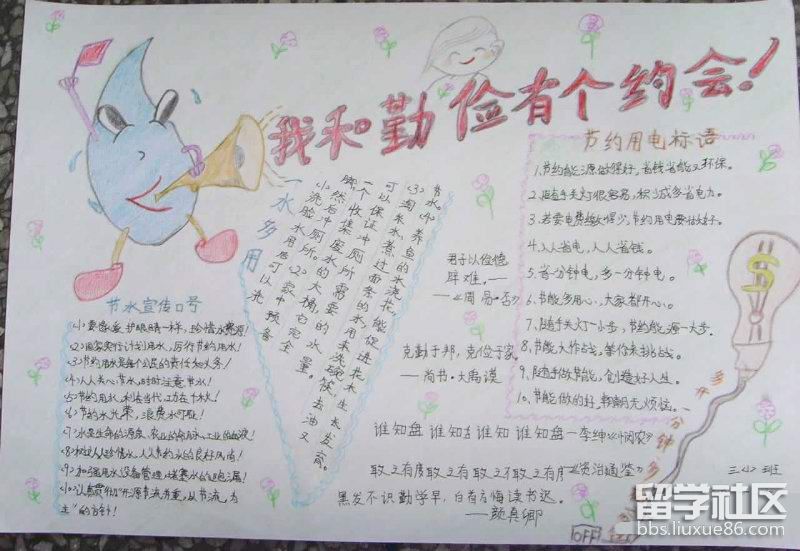 我和勤俭有个约会!
节约用电标语
1.节约能源做得好,省钱省能又环保。
2.随手关灯很容易,积少成多省电力。
3.若要电费缴得少,节约用电要做好。
4.人人省电,人人省钱。
5.省一分钟电,多一分钟电。
6.节能多用心,大家都开心。
7.随手关灯一小步,节约能源一大步。
8.节能大作战,等你来挑战。
9.随手做节能,创造好人生。
10.节能做的好,
一水多用
(1)洗脸水用后可以洗
脚,然后冲厕所。(2)家中应预备
一个收集废水的大桶,它完全
可以保证冲厕所需要的水量。
(3)淘米水、煮过面条的水,用来洗碗筷,去油又
节水。(4)养鱼的水浇花,能促进花木生长发育。
君子以俭德
辟难,——
——《周易·否》
克勤于邦,克俭于家。
——尚书·大禹谟
谁知盘 谁知盘 谁知 谁知盘—李绅《悯农》
取之有度 取之有 取之 取之有度——《资治通鉴》
黑发不识勤学早,白首方悔读书迟。
——颜真卿
节水宣传口号
(1)要像爱护眼睛一样,珍惜水资源!
(2)国家实行计划用水,厉行节约用水!
(3)节约用水是每个公民的责任和义务!
(4)人人关心节水,时时注意节水!
(5)节约用水,利在当代,功在千秋!
(6)节约水光荣,浪费水可耻!
(7)水是生命的源泉、农业的命脉、工业的血液!
(8)树立人人珍惜水,人人节约水的良好风尚!
(9)加强用水设备管理,堵塞水的跑漏!
(10)认真贯彻"开源节流并重,以节流为
主"的方针!
多开一分钟多
三(5)班
OFF
$
留学社区
bbs.liuxue86.com